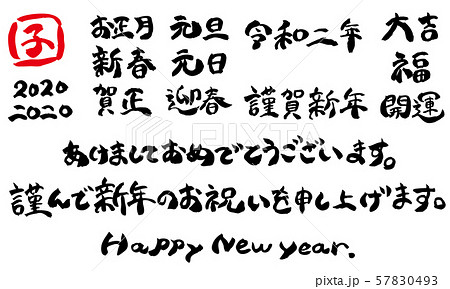 子
2020
2020
お正月
新春
賀正
元旦
元日
迎春
令和二年
謹賀新年
大吉
福
開運
あけましておめでとうございます。
謹んで新年のお祝いを申し上げます。
Happy New year.
PIXTA
pixta.jp - 57830493